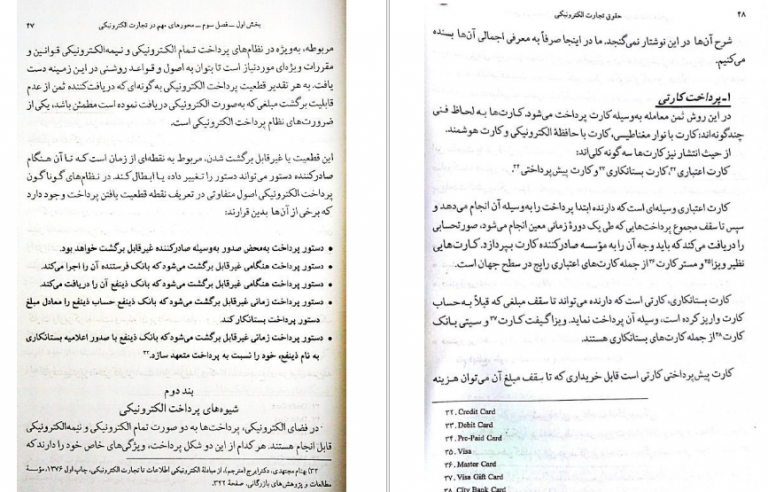 بخش اول ـ فصل سوم ـ محورهای مهم در تجارت الکترونیکی ۴۷
مربوطه، به‌ویژه در نظام‌های پرداخت تمام الکترونیکی و نیمه‌الکترونیکی قوانین و
مقررات ویژه‌ای موردنیاز است تا بتوان به اصول و قواعد روشنی در این زمینه دست
یافت. به هر تقدیر قطعیت پرداخت الکترونیکی به‌گونه‌ای که دریافت‌کننده ثمن از عدم
قابلیت برگشت مبلغی که به‌صورت الکترونیکی دریافت نموده است مطمئن باشد، یکی از
ضرورت‌های نظام پرداخت الکترونیکی است.
این قطعیت یا غیرقابل برگشت شدن، مربوط به نقطه‌ای از زمان است که تا آن هنگام
صادرکننده دستور می‌تواند دستور را تغییر داده یا ابطال کند. در نظام‌های گوناگون
پرداخت الکترونیکی اصول متفاوتی در تعریف نقطه قطعیت یافتن پرداخت وجود دارد
که برخی از آن‌ها بدین قرارند:
• دستور پرداخت به‌محض صدور به‌وسیله صادرکننده غیرقابل برگشت خواهد بود.
• دستور پرداخت هنگامی غیرقابل برگشت می‌شود که بانک فرستنده آن را اجرا می‌کند.
• دستور پرداخت هنگامی غیرقابل برگشت می‌شود که بانک ذینفع آن را دریافت می‌کند.
• دستور پرداخت زمانی غیرقابل برگشت می‌شود که بانک ذینفع حساب ذینفع را معادل مبلغ
دستور پرداخت بستانکار کند.
• دستور پرداخت زمانی غیرقابل برگشت می‌شود که بانک ذینفع با صدور اعلامیه بستانکاری
به نام ذینفع، خود را نسبت به پرداخت متعهد سازد.۳۲
بند دوم
شیوه‌های پرداخت الکترونیکی
در فضای الکترونیکی، پرداخت‌ها به دو صورت تمام الکترونیکی و نیمه‌الکترونیکی
قابل انجام هستند. هر کدام از این دو شکل پرداخت، ویژگی‌های خاص خود را دارند که
۳۲) بهنام مجتهدی، دکتر ایرج (مترجم)، از مبادلۀ الکترونیکی اطلاعات تا تجارت الکترونیکی، چاپ اول ۱۳۷۶، مؤسسۀ
مطالعات و پژوهش‌های بازرگانی، صفحۀ ۳۲۲.
۴۸ حقوق تجارت الکترونیکی
شرح آن‌ها در این نوشتار نمی‌گنجد. ما در اینجا صرفاً به معرفی اجمالی آن‌ها بسنده
می‌کنیم.
۱ـ پرداخت کارتی
در این روش ثمن معامله به‌وسیله کارت پرداخت می‌شود. کارت‌ها به لحاظ فنی
چندگونه‌اند؛ کارت با نوار مغناطیس، کارت با حافظۀ الکترونیکی و کارت هوشمند.
از حیث انتشار نیز کارت‌ها سه گونه کلی‌اند:
کارت اعتباری ۳۲، کارت بستانکاری ۳۳ و کارت پیش‌پرداختی ۳۴.
کارت اعتباری وسیله‌ای است که دارنده ابتدا پرداخت را به‌وسیله آن انجام می‌دهد و
سپس تا سقف مجموع پرداخت‌هایی که طی یک دورۀ زمانی معین انجام می‌شود، صورتحسابی
را دریافت می‌کند که باید وجه آن را به مؤسسه صادرکننده کارت بپردازد. کارت‌هایی
نظیر ویزا۳۵ و مستر کارت ۳۶ از جمله کارت‌های اعتباری رایج در سطح جهان است.
کارت بستانکاری، کارتی است که دارنده می‌تواند تا سقف مبلغی که قبلاً به حساب
کارت واریز کرده است، وسیله آن پرداخت نماید. ویزا گیفت کارت ۳۷ و سیتی بانک
کارت ۳۸ از جمله کارت‌های بستانکاری هستند.
کارت پیش‌پرداختی کارتی است قابل خریداری که تا سقف مبلغ آن می‌توان هزینه
۳۲. Credit Card
۳۳. Debit Card
۳۴. Pre-Paid Card
۳۵. Visa
۳۶. Master Card
۳۷. Visa Gift Card
۳۸. City Bank Card